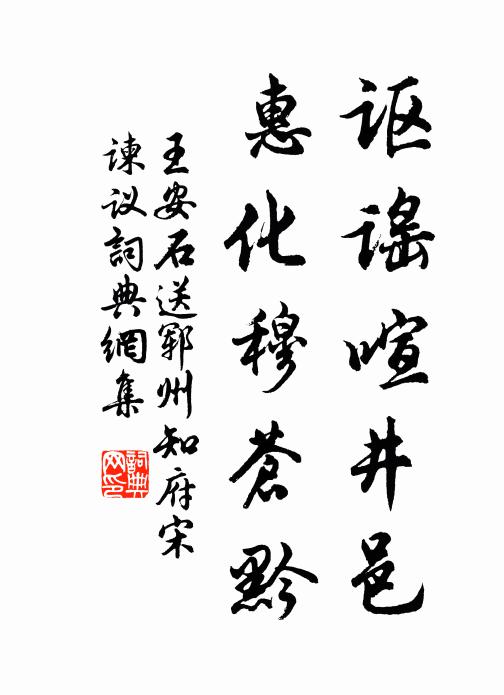 讴谣喧井邑
惠化穆苍黔
王安石送郓州知府宋
谏议詞典網集
詞典
网印